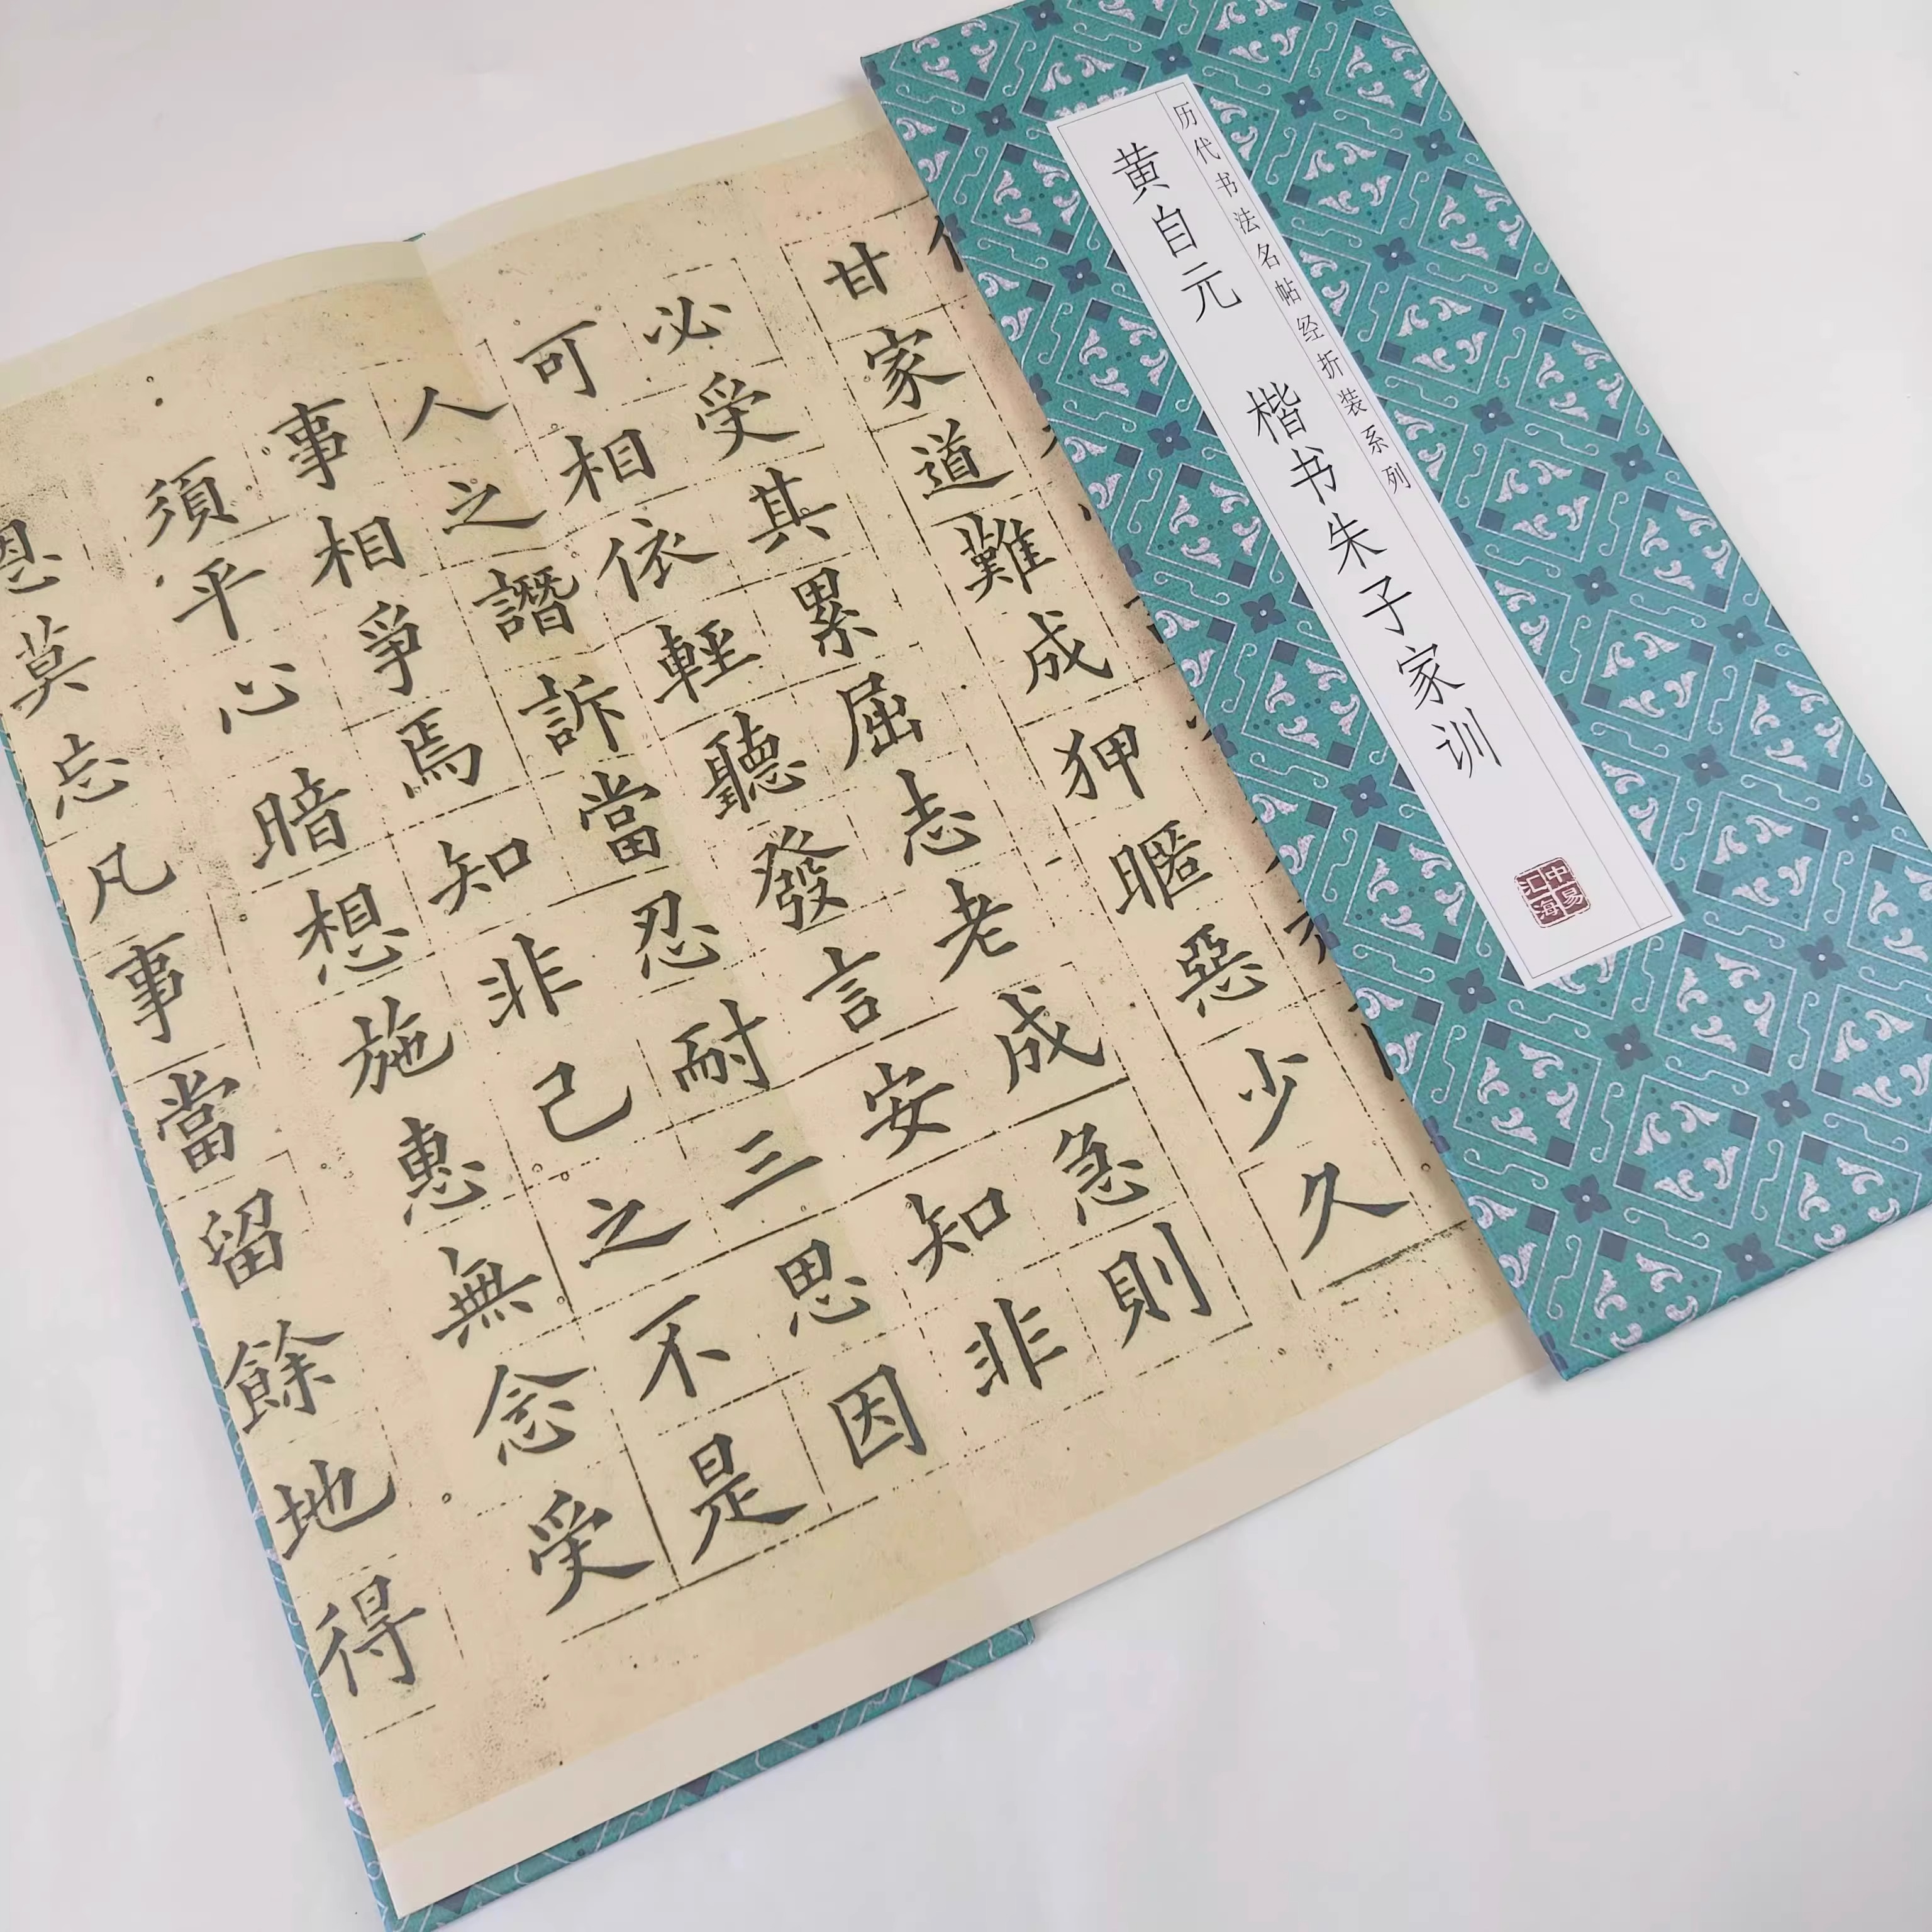 历代书法名帖经折装系列
黄自元 楷书朱子家训
中易
汇海
甘家道難成狎暱惡少久
必受其累屈志老成急則
可相依輕聽發言安知非
人之譖訴當忍耐三思因
事相爭焉知非己之不是
須平心暗想施惠無念受
恩莫忘凡事當留餘地得